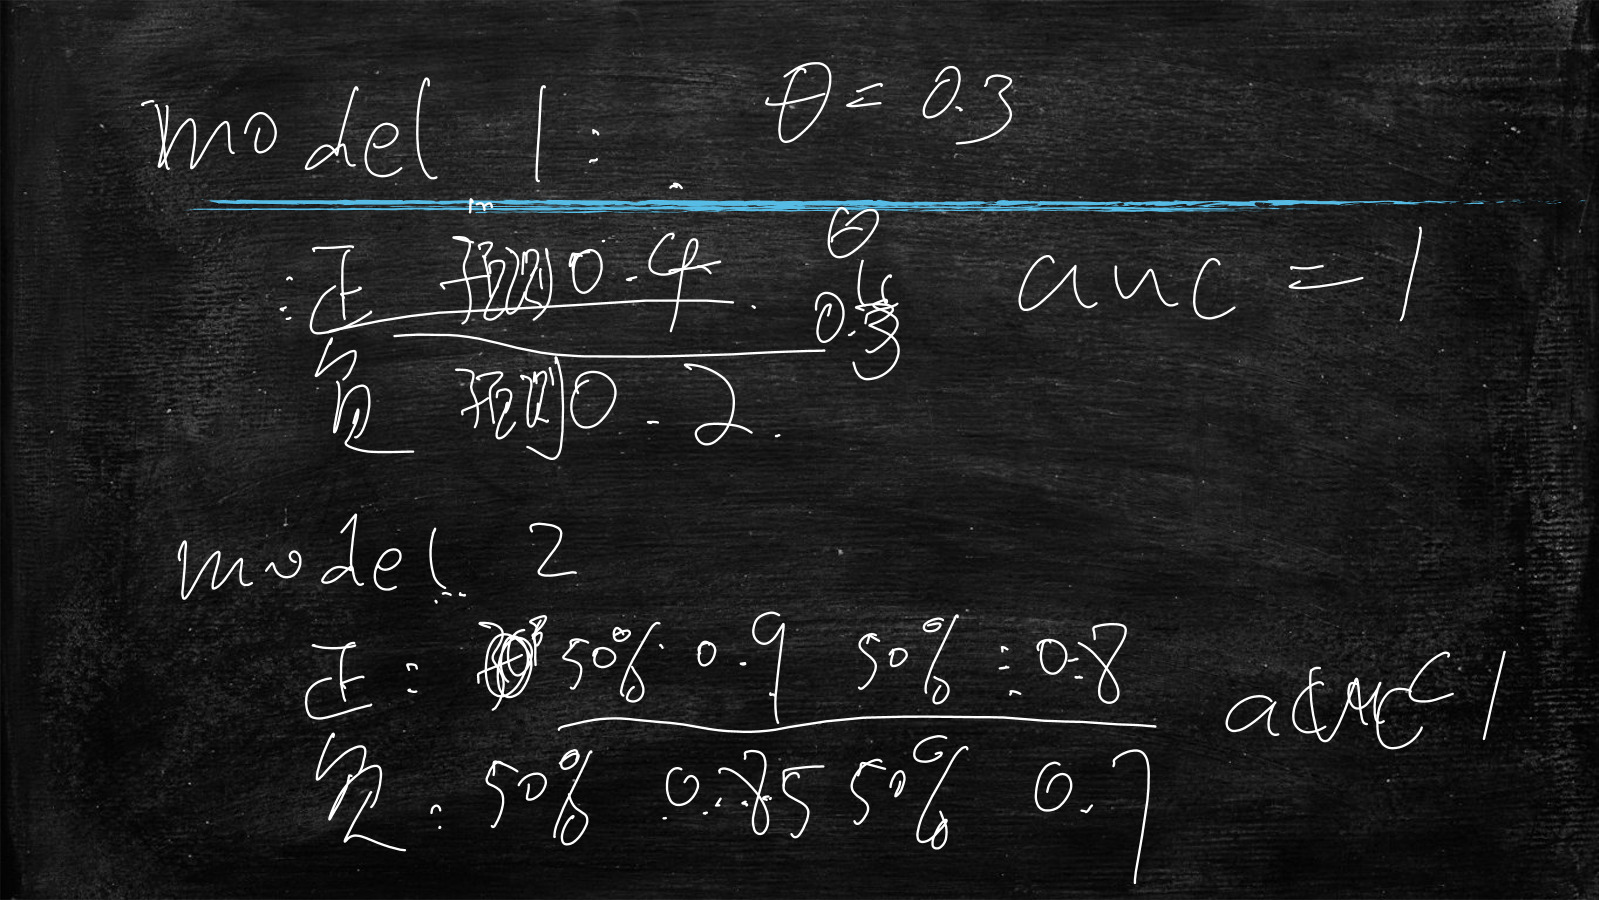 model 1: θ = 0.3
:正 预测0.4. θ
0.3
auc = 1
负 预测0.2.
model 2
正: 50% 0.9 50% : 0.8
auc 1
负: 50% 0.85 50% 0.7